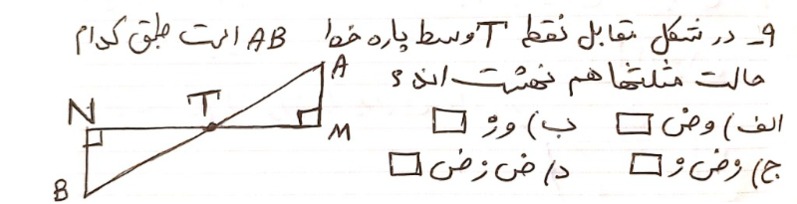 ۹- در شکل مقابل نقطه T وسط پاره خط AB است طبق کدام
حالت مثلثها هم نهشت اند؟
الف) وض ☐ ب) وز ☐
ج) وض و ☐ د) ض ز ض ☐
A
N T
M
B